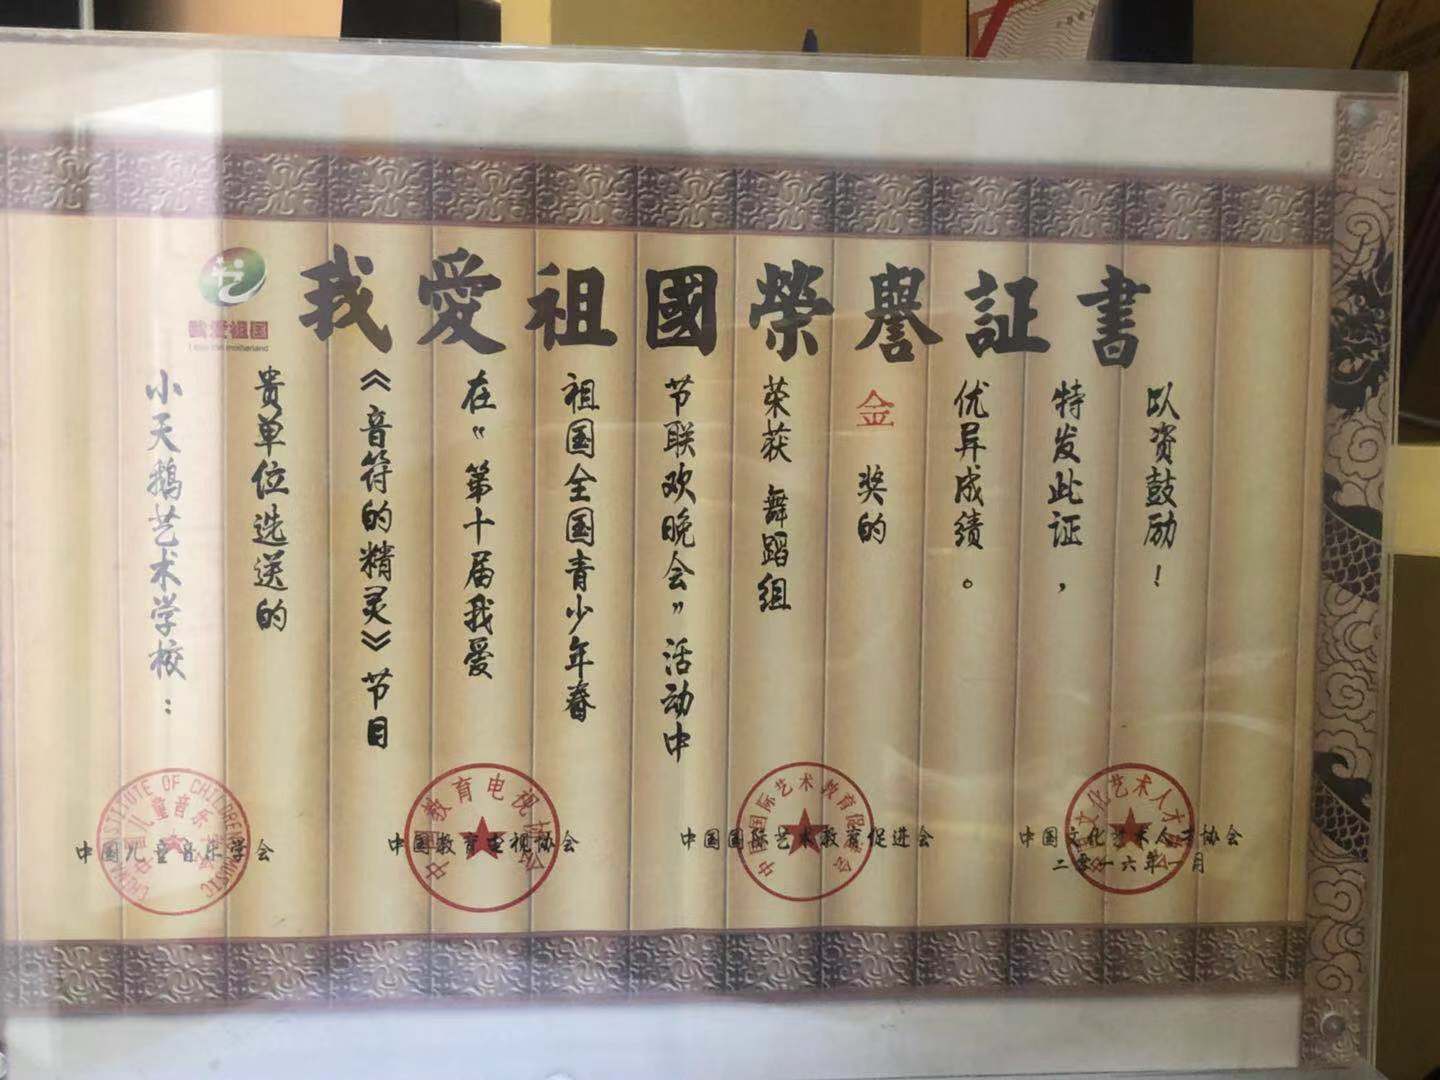 我爱祖国
I love the motherland
我愛祖國榮譽証書
小天鹅艺术学校：
贵单位选送的
《音符的精灵》节目
在“第十届我爱
祖国全国青少年春
节联欢晚会”活动中
荣获 舞蹈组
金 奖的
优异成绩。
特发此证，
以资鼓励！
中国儿童音乐学会
中国教育电视协会
中国国际艺术教育促进会
中国文化艺术人才协会
二零一六年一月
CHINA INSTITUTE OF CHILDREN MUSIC
中国儿童音乐学会
中国教育电视协会
中国国际艺术教育促进会
中国文化艺术人才协会